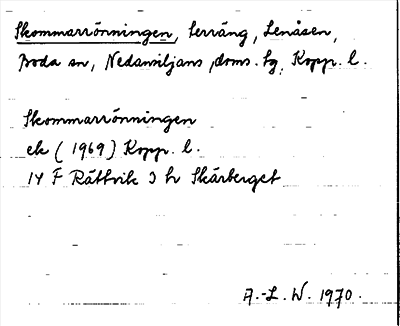 Skommarrönningen, Lerräng, Lenåsen,
Boda sn, Nedansiljans doms. hg, Kopp. l.
Skommarrönningen
ek (1969) Kopp. l.
14 F Rättvik 3 h Skärberget
A.-L. W. 1970.